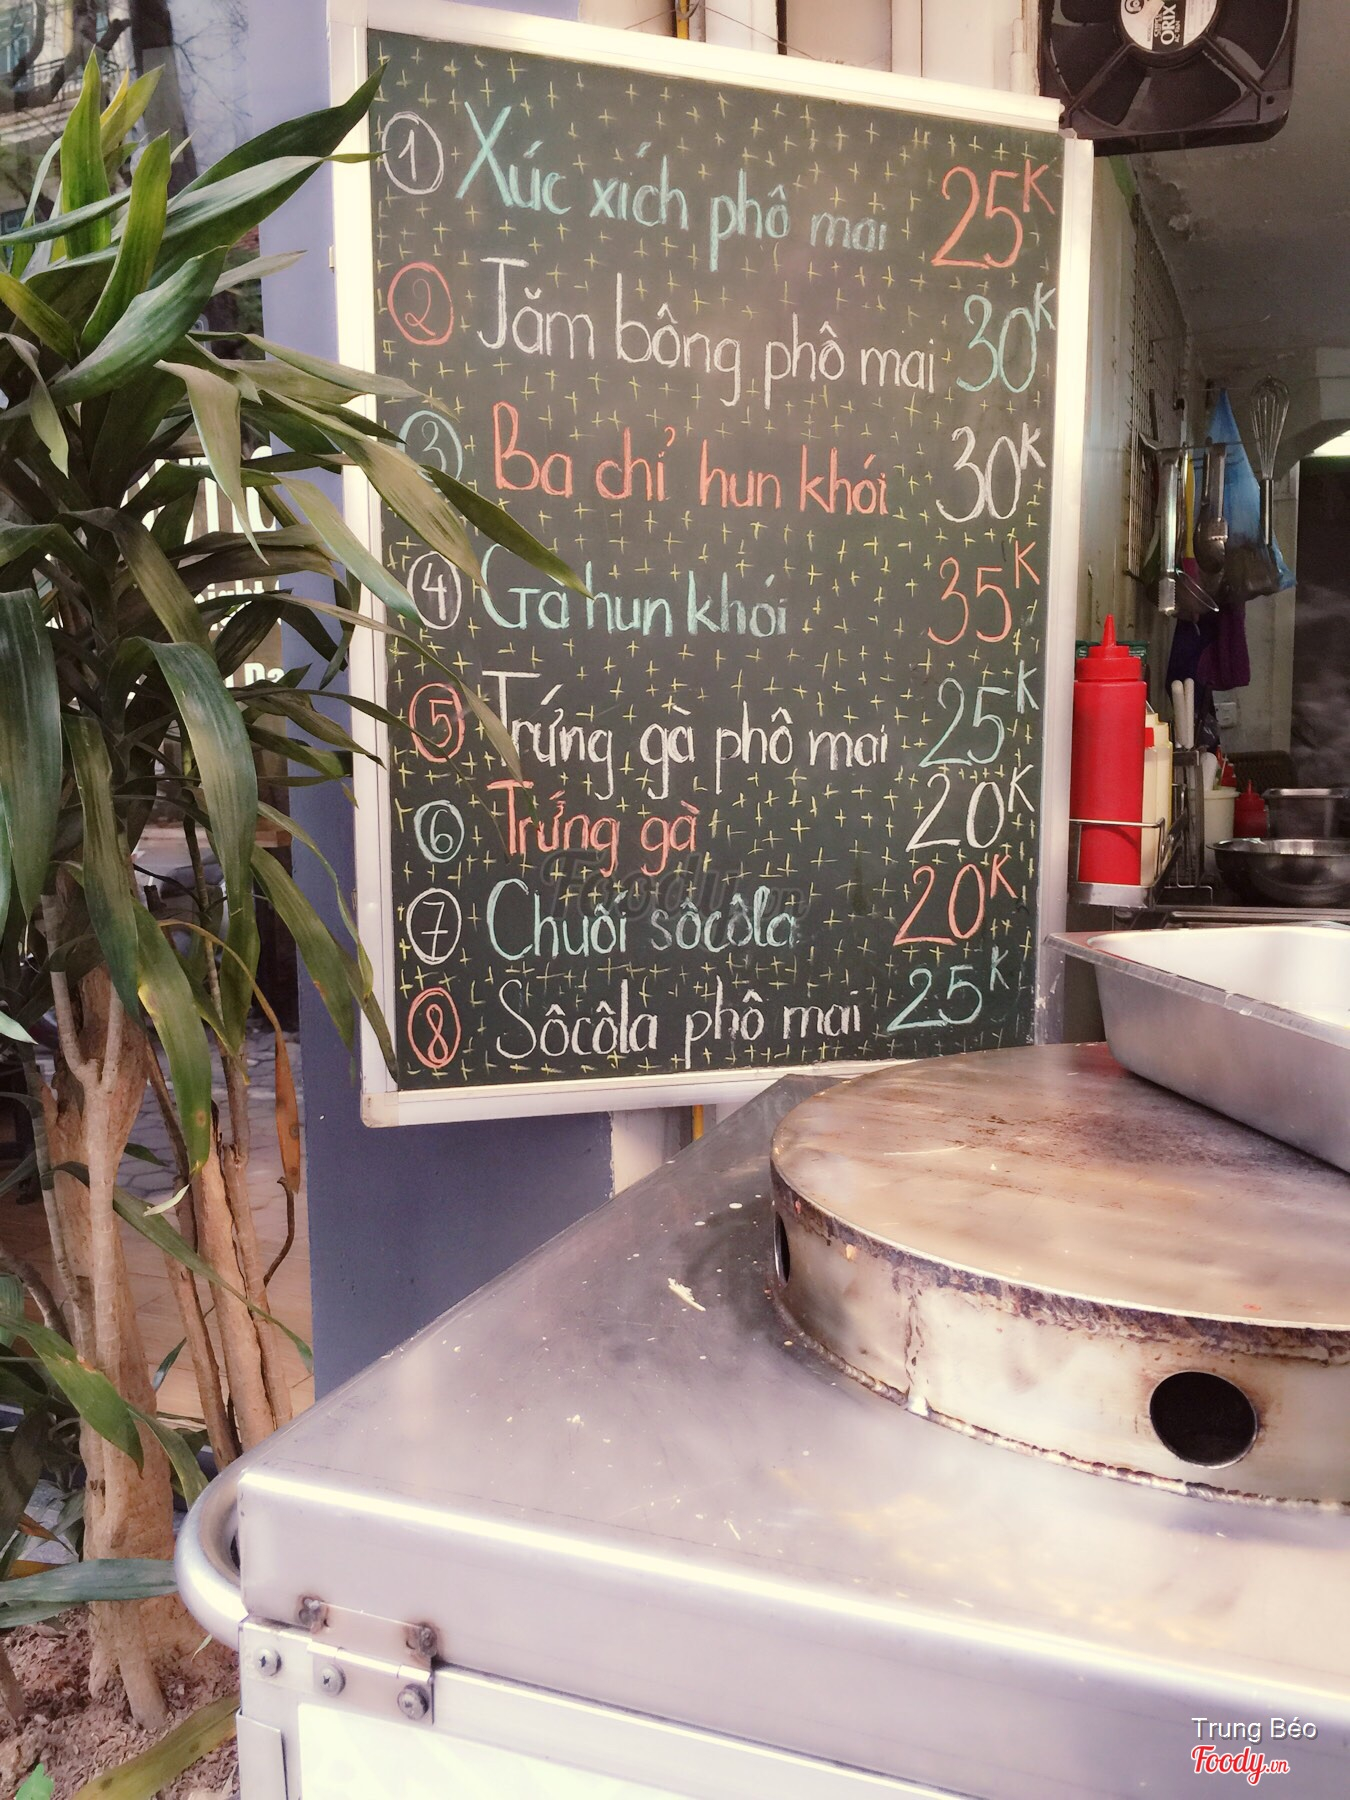 ORIX
1 Xúc xích phô mai 25K
2 Jăm bông phô mai 30K
3 Ba chỉ hun khói 30K
4 Gà hun khói 35K
5 Trứng gà phô mai 25K
6 Trứng gà 20K
7 Chuối sôcôla 20K
8 Sôcôla phô mai 25K
Foody.vn
Trung Béo
Foody.vn